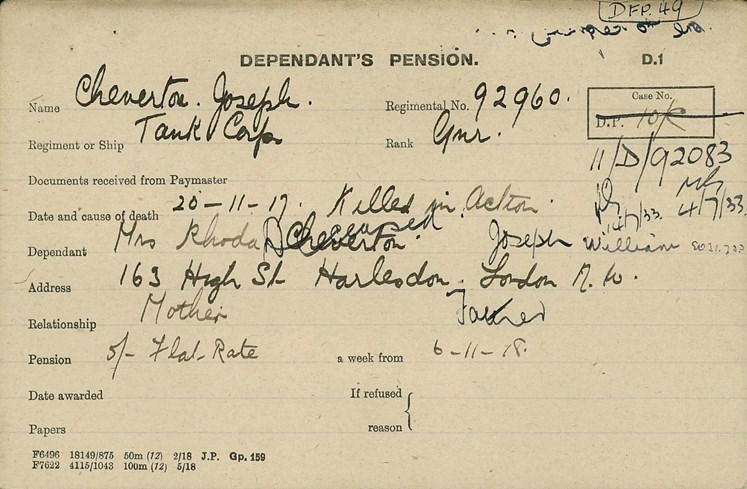 DFP. 49
DEPENDANT'S PENSION. D.1
Name Cheverton. Joseph. Regimental No. 92960. Case No.
Regiment or Ship Tank Corps Rank Gnr. D.P. 10K
11/D/92083
Documents received from Paymaster
14/7/33. 4/7/33.
Date and cause of death 20-11-17. Killed in Action.
Dependant Mrs Rhoda Cheverton. Deceased Joseph William
Address 163 High St Harlesdon. London N.W.
Relationship Mother Father
Pension 5/- Flat-Rate a week from 6-11-18.
Date awarded If refused
Papers reason
F6496 18149/875 50m (12) 2/18 J.P. Gp. 159
F7622 4115/1043 100m (12) 5/18